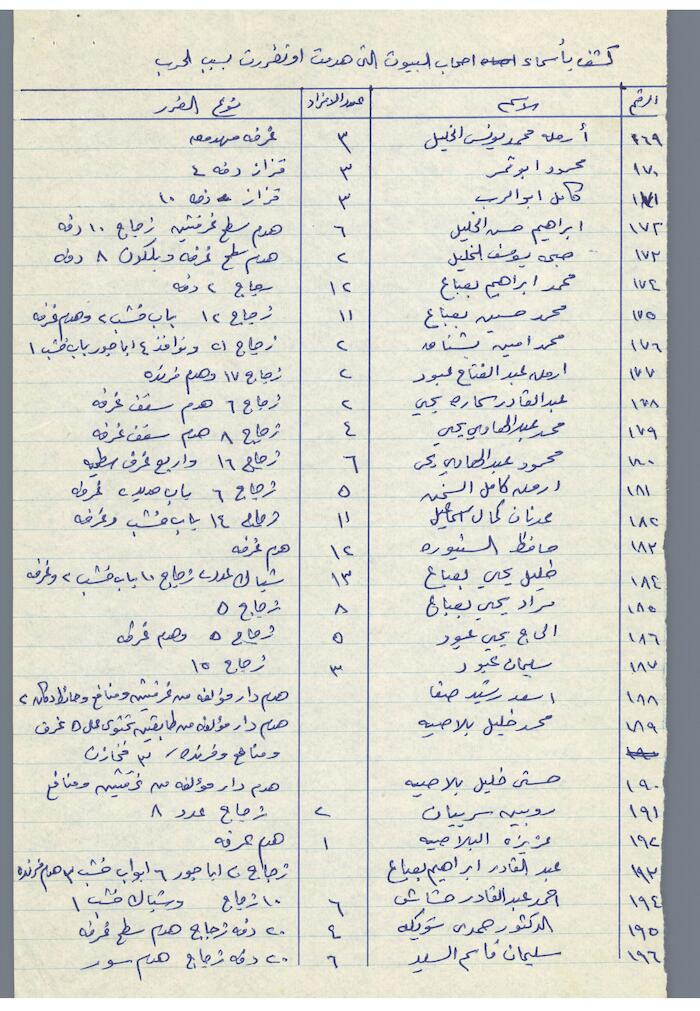 كشف بأسماء اصحاب البيوت التى هدمت او تضررت بسبب الحرب
الرقم الاسم عدد الافراد نوع الضرر
١٦٩ أرملة محمد يونس الخليل ٣ غرفه مهدمه
١٧٠ محمود ابو تمر ٣ قزاز دفه ٤
١٧١ كامل ابو الرب ٣ قزاز دفه ١٠
١٧٢ ابراهيم حسن الخليل ٦ هدم سطح غرفتين زجاج ١٠ دفه
١٧٣ صبحه يوسف الخليل ٢ هدم سطح غرفه وبلكون ٨ دفه
١٧٤ محمد ابراهيم بعباع ١٢ زجاج ٢ دفه
١٧٥ محمد حسين بعباع ١١ زجاج ١٢ باب خشب ٢ وهدم غرفه
١٧٦ محمد امين بشناق ٢ زجاج ٢١ ونوافذ ٤ اباجور باب خشب ١
١٧٧ ارملة عبد الفتاح عبود ٢ زجاج ١٧ وهدم فرنده
١٧٨ عبد القادر يحيى ٢ زجاج ٦ هدم سقف غرفه
١٧٩ محمد عبد الهادي يحيى ٤ زجاج ٨ هدم سقف غرفه
١٨٠ محمود عبد الهادي يحيى ٦ زجاج ١٦ واربع غرف
١٨١ ارملة كامل ٥ زجاج ٦ باب حديد غرفه
١٨٢ عدنان كمال اسماعيل ١١ زجاج ١٤ باب خشب وغرفه
١٨٣ حافظ السنيوره ١٢ هدم غرفه
١٨٤ خليل يحيى بعباع ١٣ شباك زجاج ١٠ باب خشب ٢ وغرفه
١٨٥ مراد يحيى بعباع ٨ زجاج ٥
١٨٦ الحاج يحيى عبود ٥ زجاج ٥ وهدم غرفه
١٨٧ سليمان عبود ٣ زجاج ١٥
١٨٨ اسعد رشيد صفا هدم دار مؤلفه من غرفتين ومنافع
١٨٩ محمد خليل بلاصيه هدم دار مؤلفه من طابقين تحتوى على ٥ غرف
ومنافع وفرنده / ٣ مخازن
١٩٠ حسني خليل بلاصيه هدم دار مؤلفه من غرفتين ومنافع
١٩١ روبين سربيان ٢ زجاج عدد ٨
١٩٢ عزيزه البلاصيه ١ هدم غرفه
١٩٣ عبد القادر ابراهيم بعباع زجاج اباجور ٦ ابواب خشب ٣ هدم فرنده
١٩٤ احمد عبد القادر حشاش ٦ ١٠ زجاج وشباك خشب ١
١٩٥ الدكتور حمدى ٤ ٢٠ دفه زجاج هدم سطح غرفه
١٩٦ سليمان قاسم السيد ٦ ٢٠ دفه زجاج هدم سور